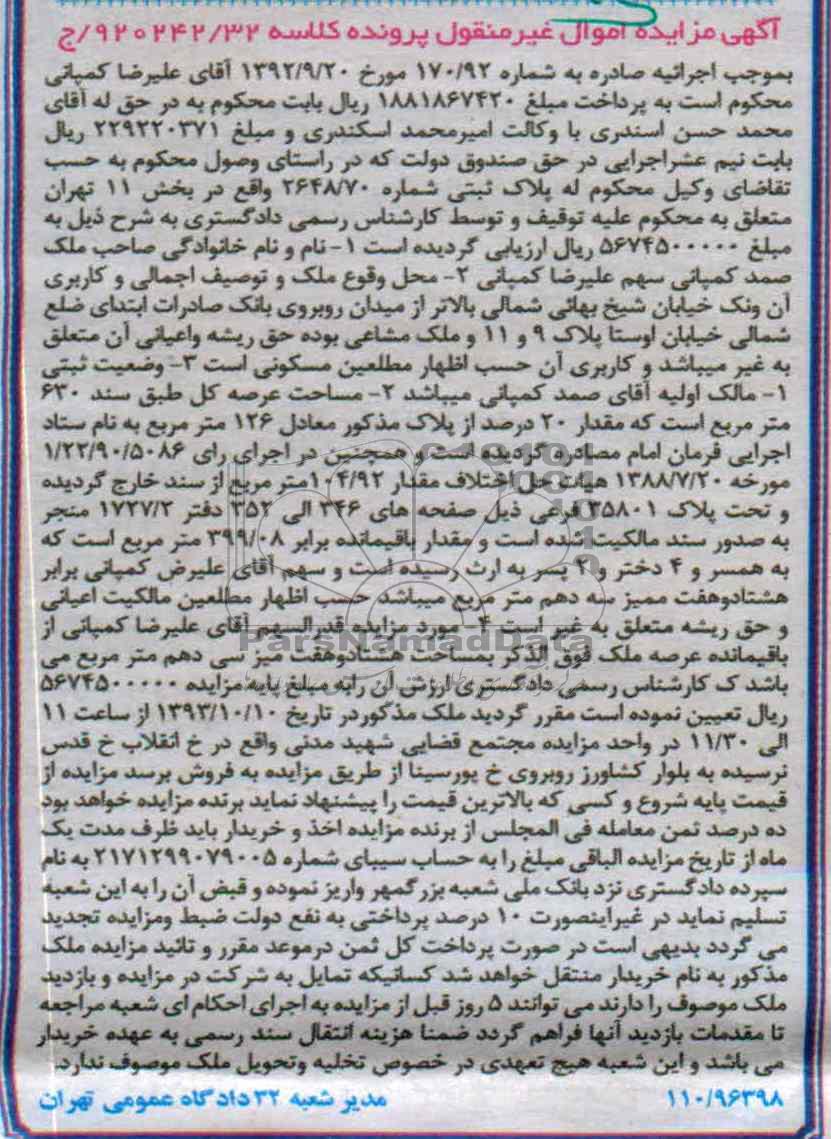 آگهی مزایده اموال غیرمنقول پرونده کلاسه ۹۲۰۲۴۲/۳۲/ج
بموجب اجرائیه صادره به شماره ۱۷۰/۹۲ مورخ ۱۳۹۲/۹/۲۰ آقای علیرضا کمپانی
محکوم است به پرداخت مبلغ ۱۸۸۱۸۶۷۴۲۰ ریال بابت محکوم به در حق له آقای
محمد حسن اسندری با وکالت امیرمحمد اسکندری و مبلغ ۲۲۹۲۲۰۳۷۱ ریال
بابت نیم عشراجرایی در حق صندوق دولت که در راستای وصول محکوم به حسب
تقاضای وکیل محکوم له پلاک ثبتی شماره ۲۶۴۸/۷۰ واقع در بخش ۱۱ تهران
متعلق به محکوم علیه توقیف و توسط کارشناس رسمی دادگستری به شرح ذیل به
مبلغ ۵۶۷۴۵۰۰۰۰۰ ریال ارزیابی گردیده است ۱- نام و نام خانوادگی صاحب ملک
صمد کمپانی سهم علیرضا کمپانی ۲- محل وقوع ملک و توصیف اجمالی و کاربری
آن ونک خیابان شیخ بهائی شمالی بالاتر از میدان روبروی بانک صادرات ابتدای ضلع
شمالی خیابان اوستا پلاک ۹ و ۱۱ و ملک مشاعی بوده حق ریشه واعیانی آن متعلق
به غیر میباشد و کاربری آن حسب اظهار مطلعین مسکونی است ۳- وضعیت ثبتی
۱- مالک اولیه آقای صمد کمپانی میباشد ۲- مساحت عرصه کل طبق سند ۶۳۰
متر مربع است که مقدار ۲۰ درصد از پلاک مذکور معادل ۱۲۶ متر مربع به نام ستاد
اجرایی فرمان امام مصادره گردیده است و همچنین در اجرای رای ۱/۲۲/۹۰/۵۰۸۶
مورخه ۱۳۸۸/۷/۲۰ هیات حل اختلاف مقدار ۱۰۴/۹۲متر مربع از سند خارج گردیده
و تحت پلاک ۳۵۸۰۱ فرعی ذیل صفحه های ۳۴۶ الی ۳۵۲ دفتر ۱۷۲۷/۲ منجر
به صدور سند مالکیت شده است و مقدار باقیمانده برابر ۳۹۹/۰۸ متر مربع است که
به همسر و ۴ دختر و ۲ پسر به ارث رسیده است و سهم آقای علیرض کمپانی برابر
هشتادوهفت ممیز سه دهم متر مربع میباشد حسب اظهار مطلعین مالکیت اعیانی
و حق ریشه متعلق به غیر است ۴- مورد مزایده قدرالسهم آقای علیرضا کمپانی از
باقیمانده عرصه ملک فوق الذکر بمساحت هشتادوهفت میز سی دهم متر مربع می
باشد ک کارشناس رسمی دادگستری ارزش آن رابه مبلغ پایه مزایده ۵۶۷۴۵۰۰۰۰۰
ریال تعیین نموده است مقرر گردید ملک مذکور در تاریخ ۱۳۹۳/۱۰/۱۰ از ساعت ۱۱
الی ۱۱/۳۰ در واحد مزایده مجتمع قضایی شهید مدنی واقع در خ انقلاب خ قدس
نرسیده به بلوار کشاورز روبروی خ پورسینا از طریق مزایده به فروش برسد مزایده از
قیمت پایه شروع و کسی که بالاترین قیمت را پیشنهاد نماید برنده مزایده خواهد بود
ده درصد ثمن معامله فی المجلس از برنده مزایده اخذ و خریدار باید ظرف مدت یک
ماه از تاریخ مزایده الباقی مبلغ را به حساب سیبای شماره ۲۱۷۱۲۹۹۰۷۹۰۰۵ به نام
سپرده دادگستری نزد بانک ملی شعبه بزرگمهر واریز نموده و قبض آن را به این شعبه
تسلیم نماید در غیراینصورت ۱۰ درصد پرداختی به نفع دولت ضبط ومزایده تجدید
می گردد بدیهی است در صورت پرداخت کل ثمن درموعد مقرر و تائید مزایده ملک
مذکور به نام خریدار منتقل خواهد شد کسانیکه تمایل به شرکت در مزایده و بازدید
ملک موصوف را دارند می توانند ۵ روز قبل از مزایده به اجرای احکام ای شعبه مراجعه
تا مقدمات بازدید آنها فراهم گردد ضمنا هزینه انتقال سند رسمی به عهده خریدار
می باشد و این شعبه هیچ تعهدی در خصوص تخلیه وتحویل ملک موصوف ندارد.
۱۱۰/۹۶۳۹۸ مدیر شعبه ۳۲ دادگاه عمومی تهران
ParsNamadData